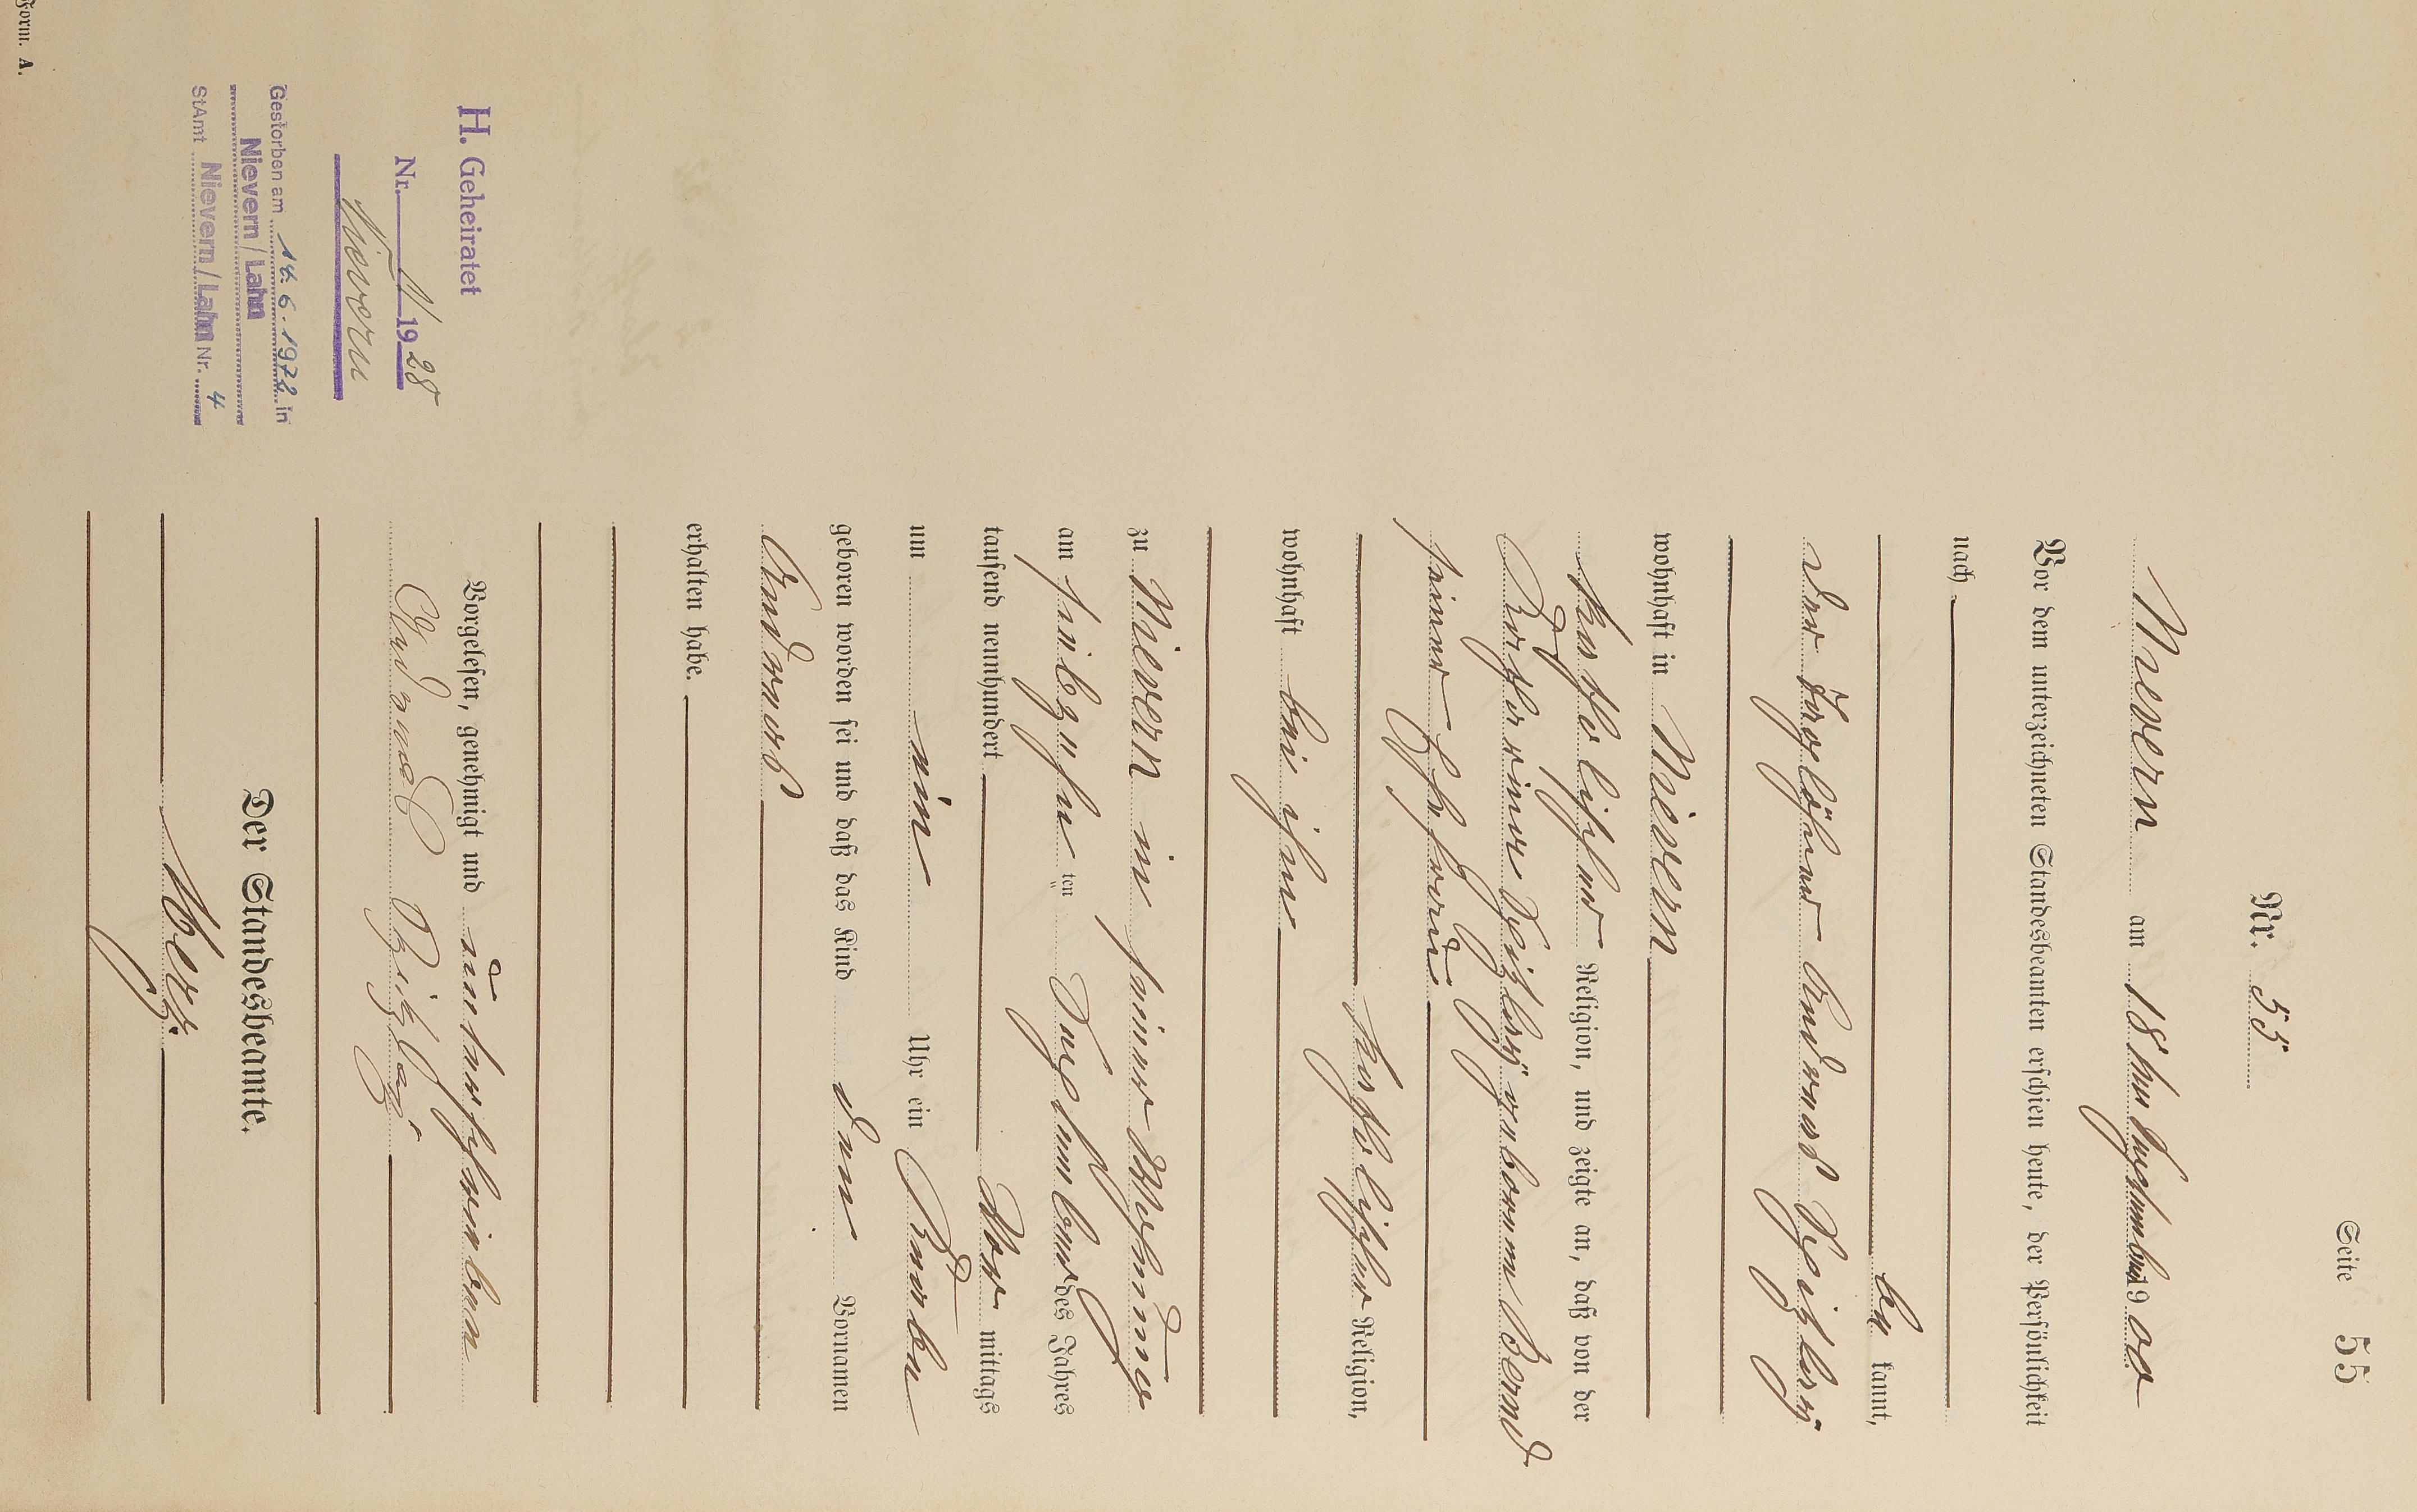 Seite 55
Nr. 55
Nievern am 18ten September 1900
Vor dem unterzeichneten Standesbeamten erschien heute, der Persönlichkeit
nach
be kannt,
der Taglöhner Andreas Spitzley
wohnhaft in Nievern
katholischer Religion, und zeigte an, daß von der
Katharina Spitzley geborenen Bernd
seiner Ehefrau
katholischer Religion,
wohnhaft bei ihm
zu Nievern in seiner Wohnung
am siebzehn ten September des Jahres
tausend neunhundert Vor mittags
um ein Uhr ein Knabe
geboren worden sei und daß das Kind den Vornamen
Andreas
erhalten habe.
Vorgelesen, genehmigt und unterschrieben
Andreas Spitzlay
Der Standesbeamte.
Merz.
H. Geheiratet
Nr. 1/1928
Nievern
Gestorben am 14.6.1972 in
Nievern/Lahn
StAmt Nievern/Lahn Nr. 4
Form. A.